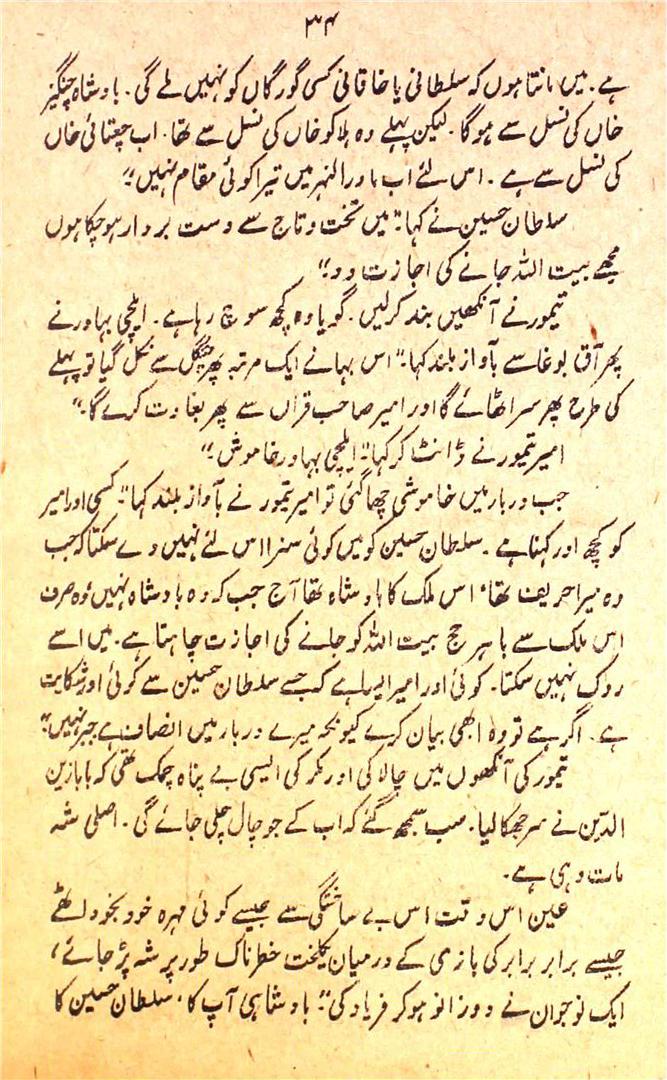 ۳۴
ہے۔ میں مانتا ہوں کہ سلطانی یا خاقانی کسی گورگاں کو نہیں ملے گی۔ بادشاہ چنگیز
خاں کی نسل سے ہوگا۔ لیکن پہلے وہ ہلاکو خاں کی نسل سے تھا۔ اب چغتائی خاں
کی نسل سے ہے۔ اس لئے اب ماورا النہر میں تیرا کوئی مقام نہیں"
سلطان حسین نے کہا۔ "میں تخت و تاج سے دست بردار ہو چکا ہوں
مجھے بیت اللہ جانے کی اجازت دو"
تیمور نے آنکھیں بند کرلیں۔ گویا وہ کچھ سوچ رہا ہے۔ ایلچی بہادر نے
پھر آق بوغا سے بآواز بلند کہا۔ "اس بہانے ایک مرتبہ پھر چنگل سے نکل گیا تو پہلے
کی طرح پھر سر اٹھائے گا اور امیر صاحب قراں سے پھر بغاوت کرے گا۔"
امیر تیمور نے ڈانٹ کر کہا "ایلچی بہادر خاموش"
جب دربار میں خاموشی چھا گئی تو امیر تیمور نے بآواز بلند کہا "کسی اور امیر
کو کچھ اور کہنا ہے۔ سلطان حسین کو میں کوئی سزا اس لئے نہیں دے سکتا کہ جب
وہ میرا حریف تھا، اس ملک کا بادشاہ تھا آج جب کہ وہ بادشاہ نہیں، وہ صرف
اس ملک سے باہر حج بیت اللہ کو جانے کی اجازت چاہتا ہے۔ میں اسے
روک نہیں سکتا۔ کوئی اور امیر ایسا ہے کہ جسے سلطان حسین سے کوئی اور شکایت
ہے۔ اگر ہے تو وہ ابھی بیان کرے کیونکہ میرے دربار میں انصاف ہے جبر نہیں"
تیمور کی آنکھوں میں چالاکی اور مکر کی ایسی بے پناہ چمک تھی کہ بابا زین
الدین نے سر جھکا لیا۔ سب سمجھ گئے کہ اب کے جو چال چلی جائے گی۔ اصلی شہ
مات وہی ہے۔
عین اس وقت اس بے ساختگی سے جیسے کوئی مہرہ خود بخود اٹھے
جیسے برابر برابر کی بازی کے درمیان یکلخت خطرناک طور پر شہ پڑ جائے،
ایک نوجوان نے دو زانو ہو کر فریاد کی "بادشاہی آپ کا، سلطان حسین کا